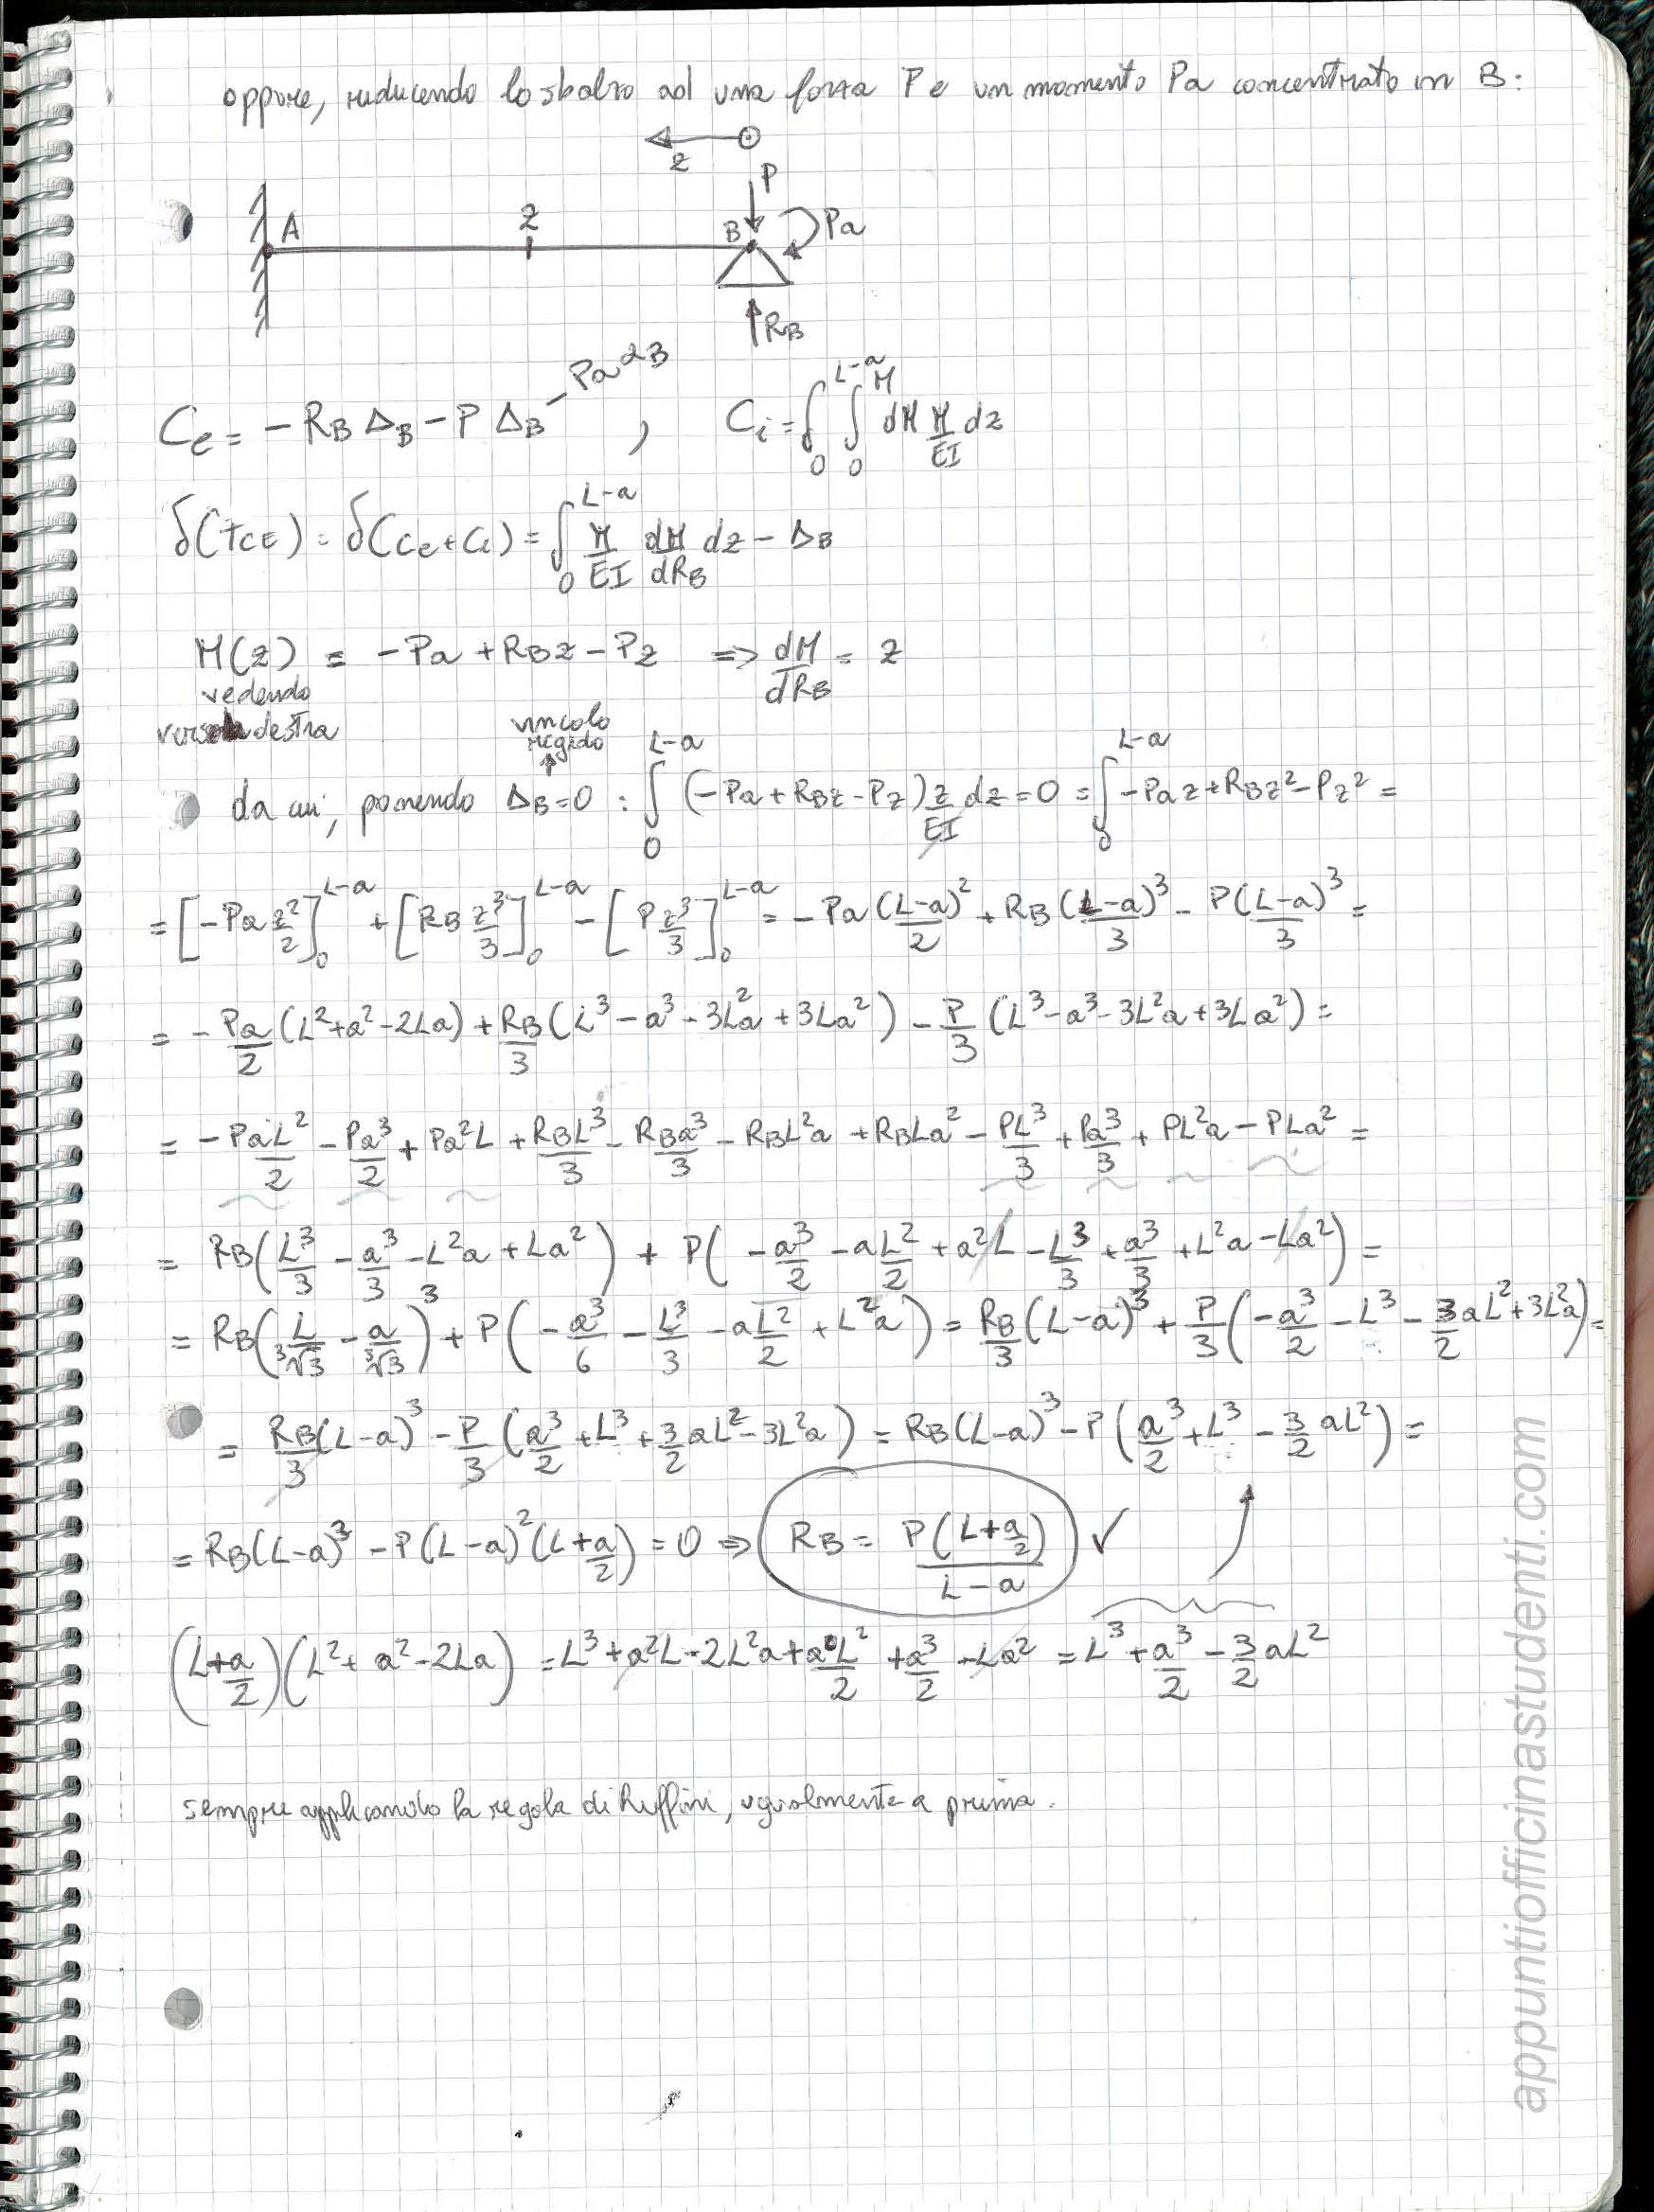 oppure, riducendo lo sbalzo ad una forza P e un momento Pa concentrato in B:
z
P
A z B Pa
R_B
C_e = - R_B Δ_B - P Δ_B - Pa α_B , C_i = ∫_0^{L-a} ∫_0^M dM M/EI dz
δ(TCE) = δ(C_e + C_i) = ∫_0^{L-a} M/EI dM/dR_B dz - Δ_B
M(z) = -Pa + R_B z - Pz => dM/dR_B = z
vedendo
verso destra
vincolo
rigido
da cui, ponendo Δ_B = 0 : ∫_0^{L-a} (-Pa + R_B z - Pz) z/EI dz = 0 = ∫_0^{L-a} -Paz + R_B z² - Pz² =
= [-Pa z²/2]_0^{L-a} + [R_B z³/3]_0^{L-a} - [P z³/3]_0^{L-a} = -Pa (L-a)²/2 + R_B (L-a)³/3 - P(L-a)³/3 =
= -Pa/2 (L² + a² - 2La) + R_B/3 (L³ - a³ - 3L²a + 3La²) - P/3 (L³ - a³ - 3L²a + 3La²) =
= -PaL²/2 - Pa³/2 + Pa²L + R_B L³/3 - R_B a³/3 - R_B L²a + R_B La² - PL³/3 + Pa³/3 + PL²a - PLa² =
= R_B (L³/3 - a³/3 - L²a + La²) + P(-a³/2 - aL²/2 + a²L - L³/3 + a³/3 + L²a - La²) =
= R_B (L/³√3 - a/³√3)³ + P(-a³/6 - L³/3 - aL²/2 + L²a) = R_B/3 (L-a)³ + P/3 (-a³/2 - L³ - 3/2 aL² + 3L²a) =
= R_B/3 (L-a)³ - P/3 (a³/2 + L³ + 3/2 aL² - 3L²a) = R_B (L-a)³ - P(a³/2 + L³ - 3/2 aL²) =
= R_B (L-a)³ - P(L-a)² (L + a/2) = 0 => R_B = P(L + a/2)/(L-a) ✓
(L + a/2)(L² + a² - 2La) = L³ + a²L - 2L²a + aL²/2 + a³/2 - La² = L³ + a³/2 - 3/2 aL²
sempre applicando la regola di Ruffini, ugualmente a prima.
appuntiofficinastudenti.com